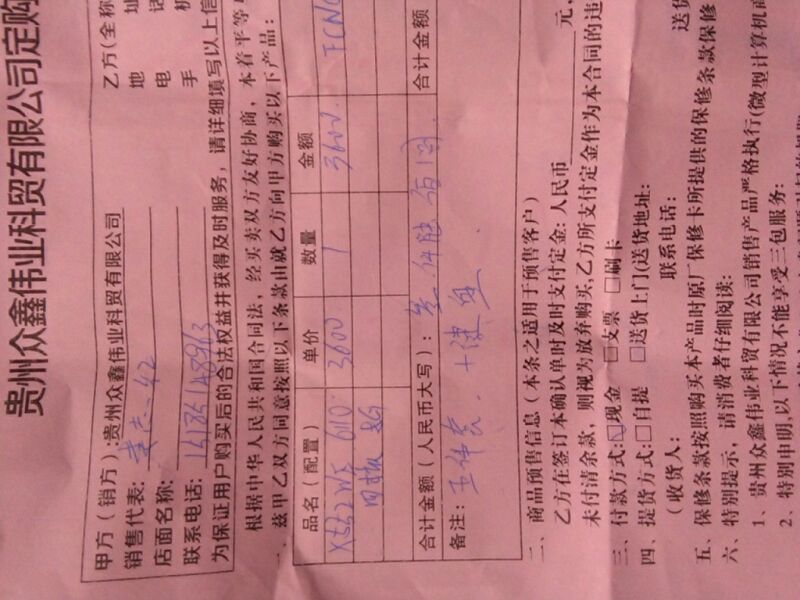 贵州众鑫伟业科贸有限公司定购
甲方（销方）:贵州众鑫伟业科贸有限公司
乙方(全称
销售代表:
地
店面名称:
电
联系电话:
手
为保证用户购买后的合法权益并获得及时服务，请详细填写以上信
根据中华人民共和国合同法，经买卖双方友好协商，本着平等
一、兹甲乙双方同意按照以下条款由就乙方向甲方购买以下产品:
品名（配置） 单价 数量 金额
3600 1 3600
合计金额（人民币大写）: 合计金额
备注:
二、商品预售信息（本条之适用于预售客户）
乙方在签订本确认单时及时支付定金: 人民币 元,
未付清余款，则视为放弃购买,乙方所支付定金作为本合同的违
三、付款方式:□现金 □支票 □刷卡
四、提货方式:□自提 □送货上门(送货地址: 送货
（收货人: 联系电话:
五、保修条款按照购买本产品时原厂保修卡所提供的保修条款保修
六、特别提示，请消费者仔细阅读:
1、贵州众鑫伟业科贸有限公司销售产品严格执行(微型计算机商
2、特别申明,以下情况不能享受三包服务: